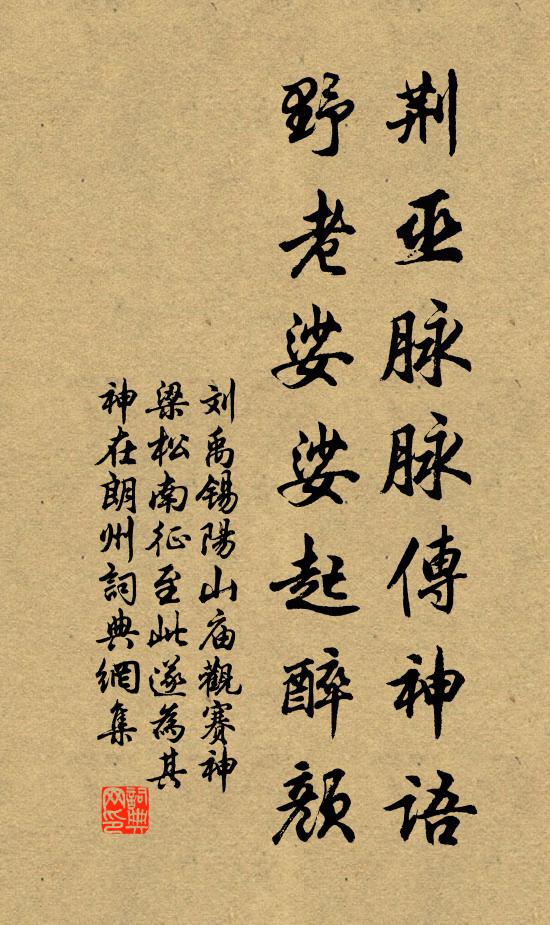 荆巫脉脉傳神語
野老娑娑起醉顏
刘禹锡陽山庙觀賽神
梁松南征至此遂為其
神在朗州詞典網集
詞典
网印